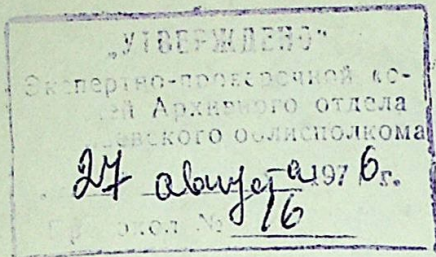 „УТВЕРЖДЕНО"
Экспертно-проверочной ко-
ей Архивного отдела
евского облисполкома
27 августа 1976г.
№ 16